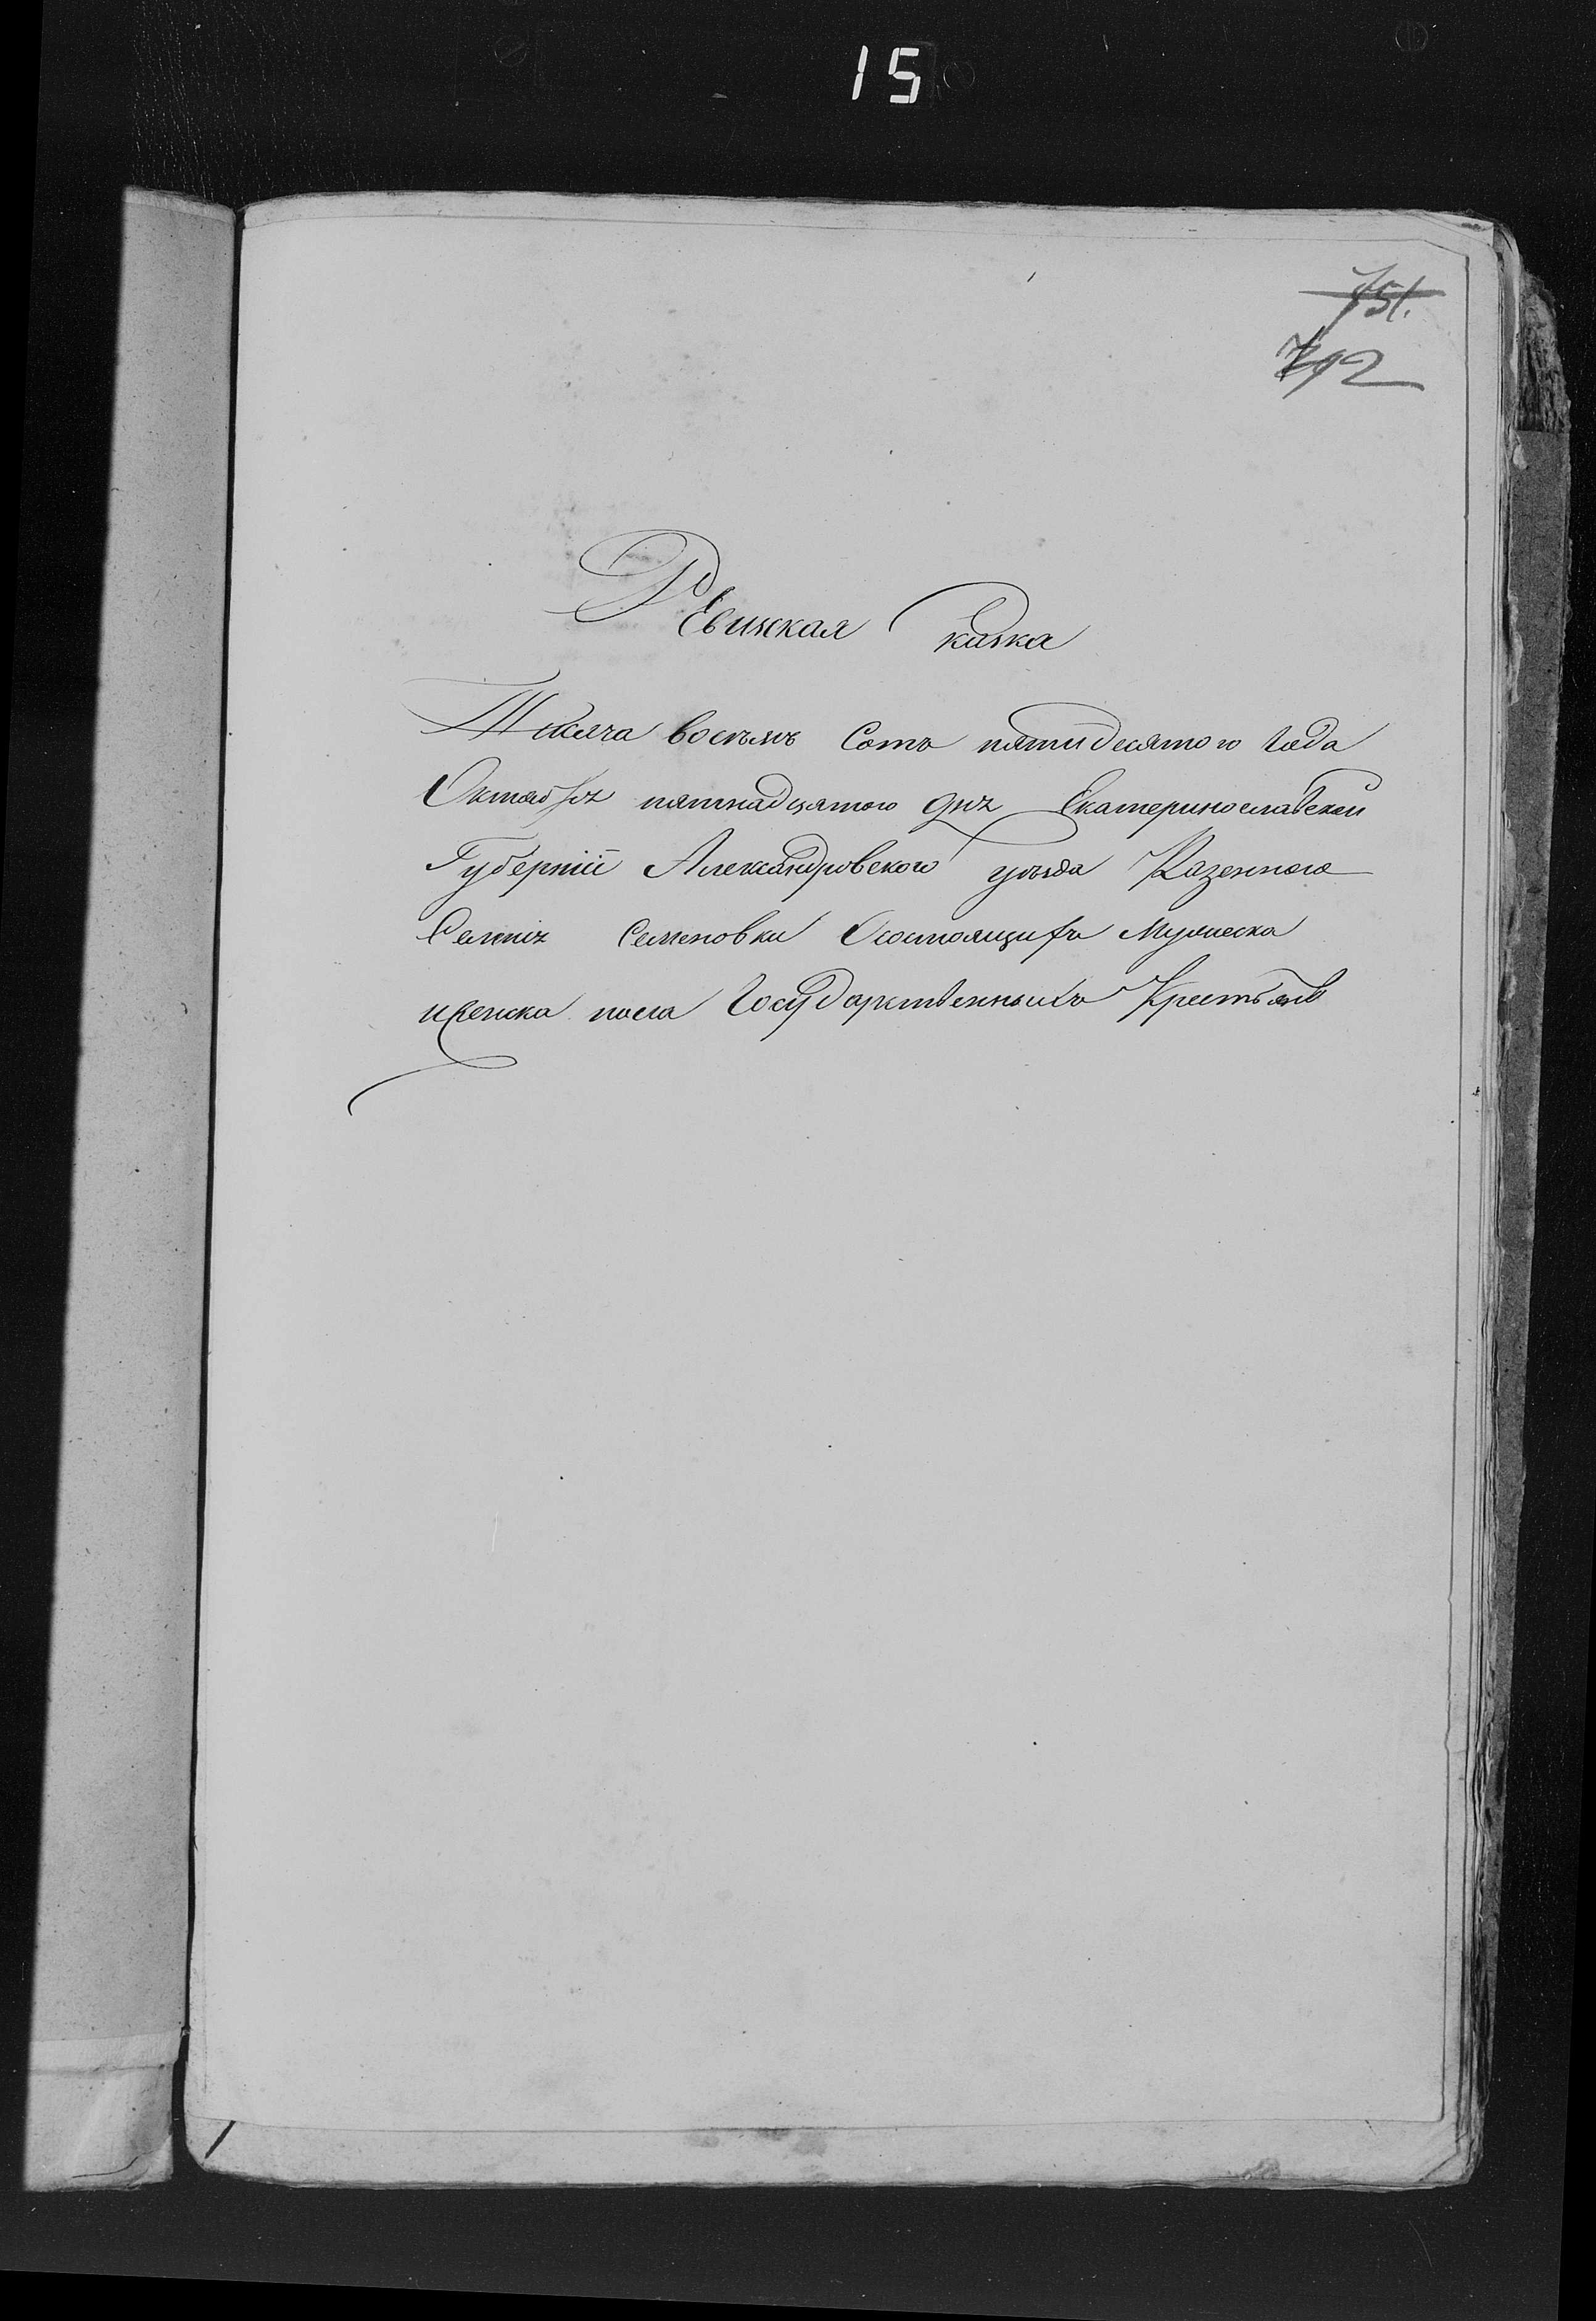 15
751.
712
Ревизская Сказка
Тысяча восемь Сотъ пятидесятого года
Октября пятнадцятого дня Екатеринославской
Губерніи Александровского уѣзда Казенного
Селенія Семеновки О состоящихъ Мужеска
и женска пола Государственныхъ Крестьянъ